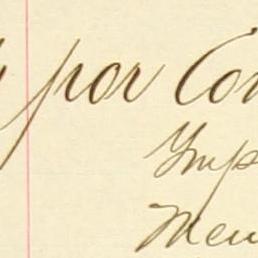 por Con
Imp
Men